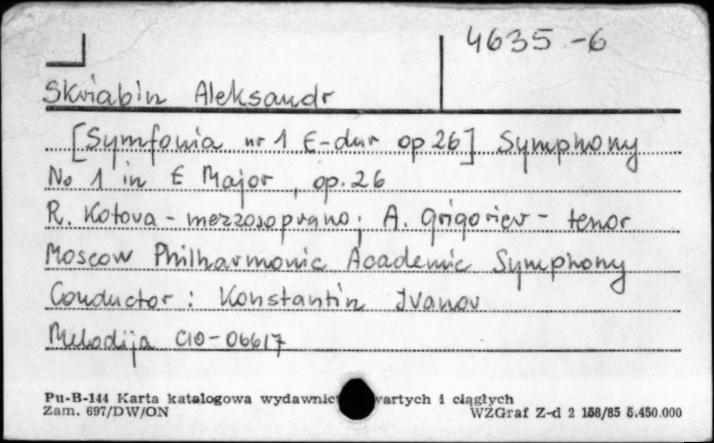 4635-6
Skriabin Aleksandr
[Symfonia nr 1 E-dur op 26] Symphony
No 1 in E Major, op. 26
R. Kotova - mezzosoprano; A. Grigoriev - tenor
Moscow Philharmonic Academic Symphony
Conductor: Konstantin Ivanov
Melodija C10-06617
Pu-B-144 Karta katalogowa wydawnic wartych i ciągłych
Zam. 697/DW/ON WZGraf Z-d 2 158/85 5.450.000